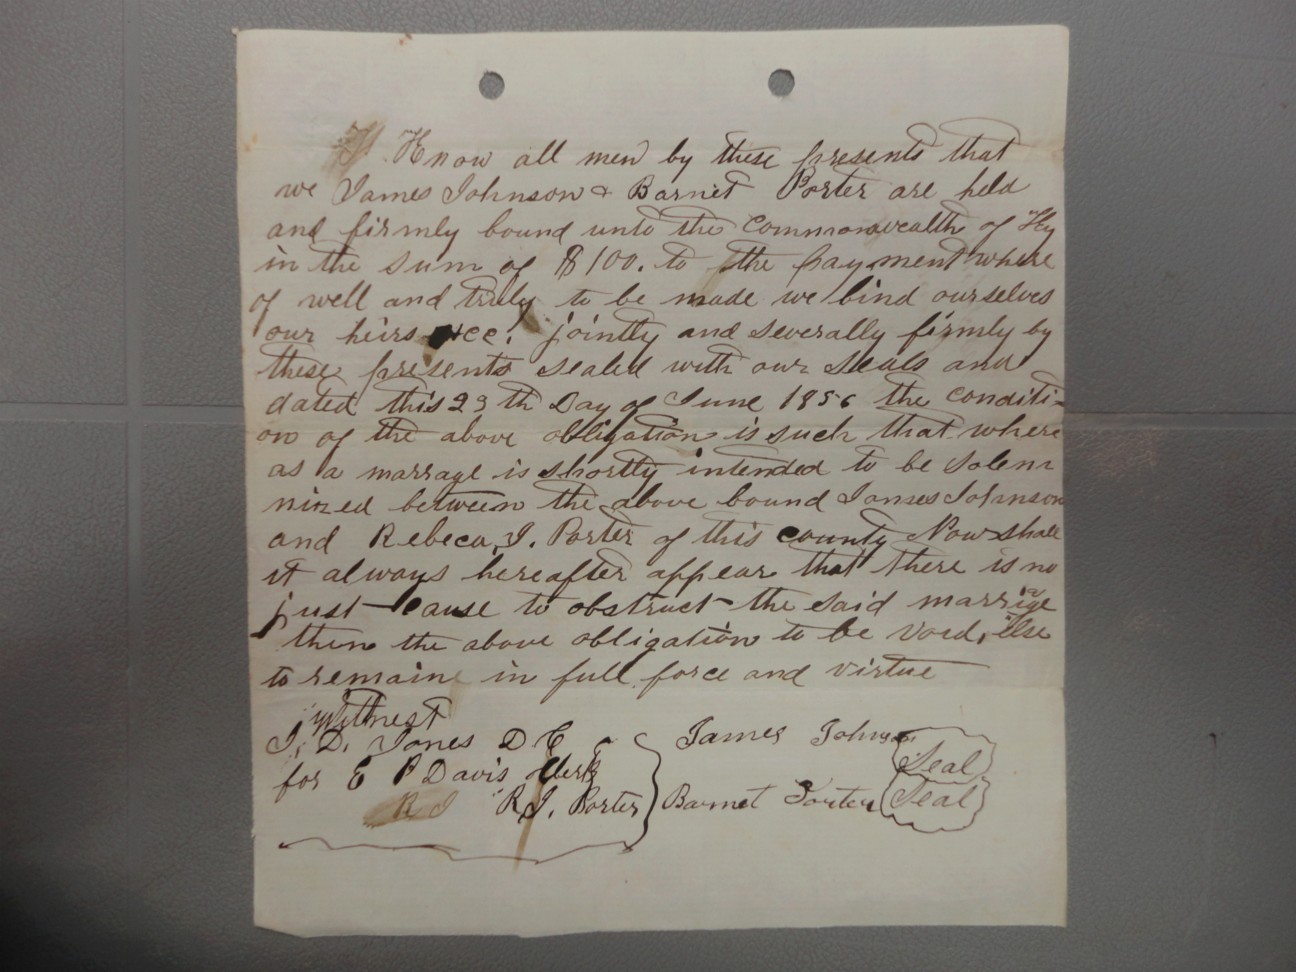 Know all men by these presents that
we James Johnson & Barnet Porter are held
and firmly bound unto the Commonwealth of Ky
in the sum of $100. to the payment where
of well and truly to be made we bind ourselves
our heirs &cc. jointly and severally firmly by
these presents sealed with our seals and
dated this 23th Day of June 1856 the Conditi-
on of the above obligation is such that where
as a marrage is shortly intended to be Solem
nized between the above bound James Johnson
and Rebeca, J. Porter of this county Now shall
it always hereafter appear that there is no
just cause to obstruct the said marrige
then the above obligation to be Void, Else
to remaine in full force and virtue
Witnest
J. D. Jones D C
for E P Davis Clerk
R J R J. Porter
James Johnson Seal
Barnet Porter Seal